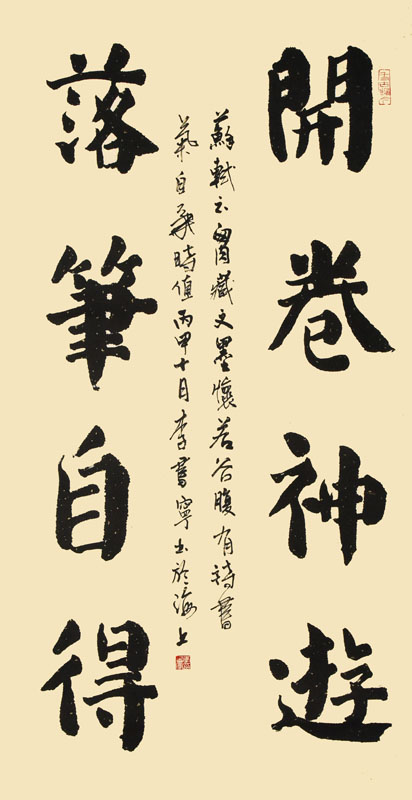 開卷神遊
蘇軾云胸藏文墨懷若谷腹有詩書
氣自華時值丙申十月李書寧书於海上
落筆自得